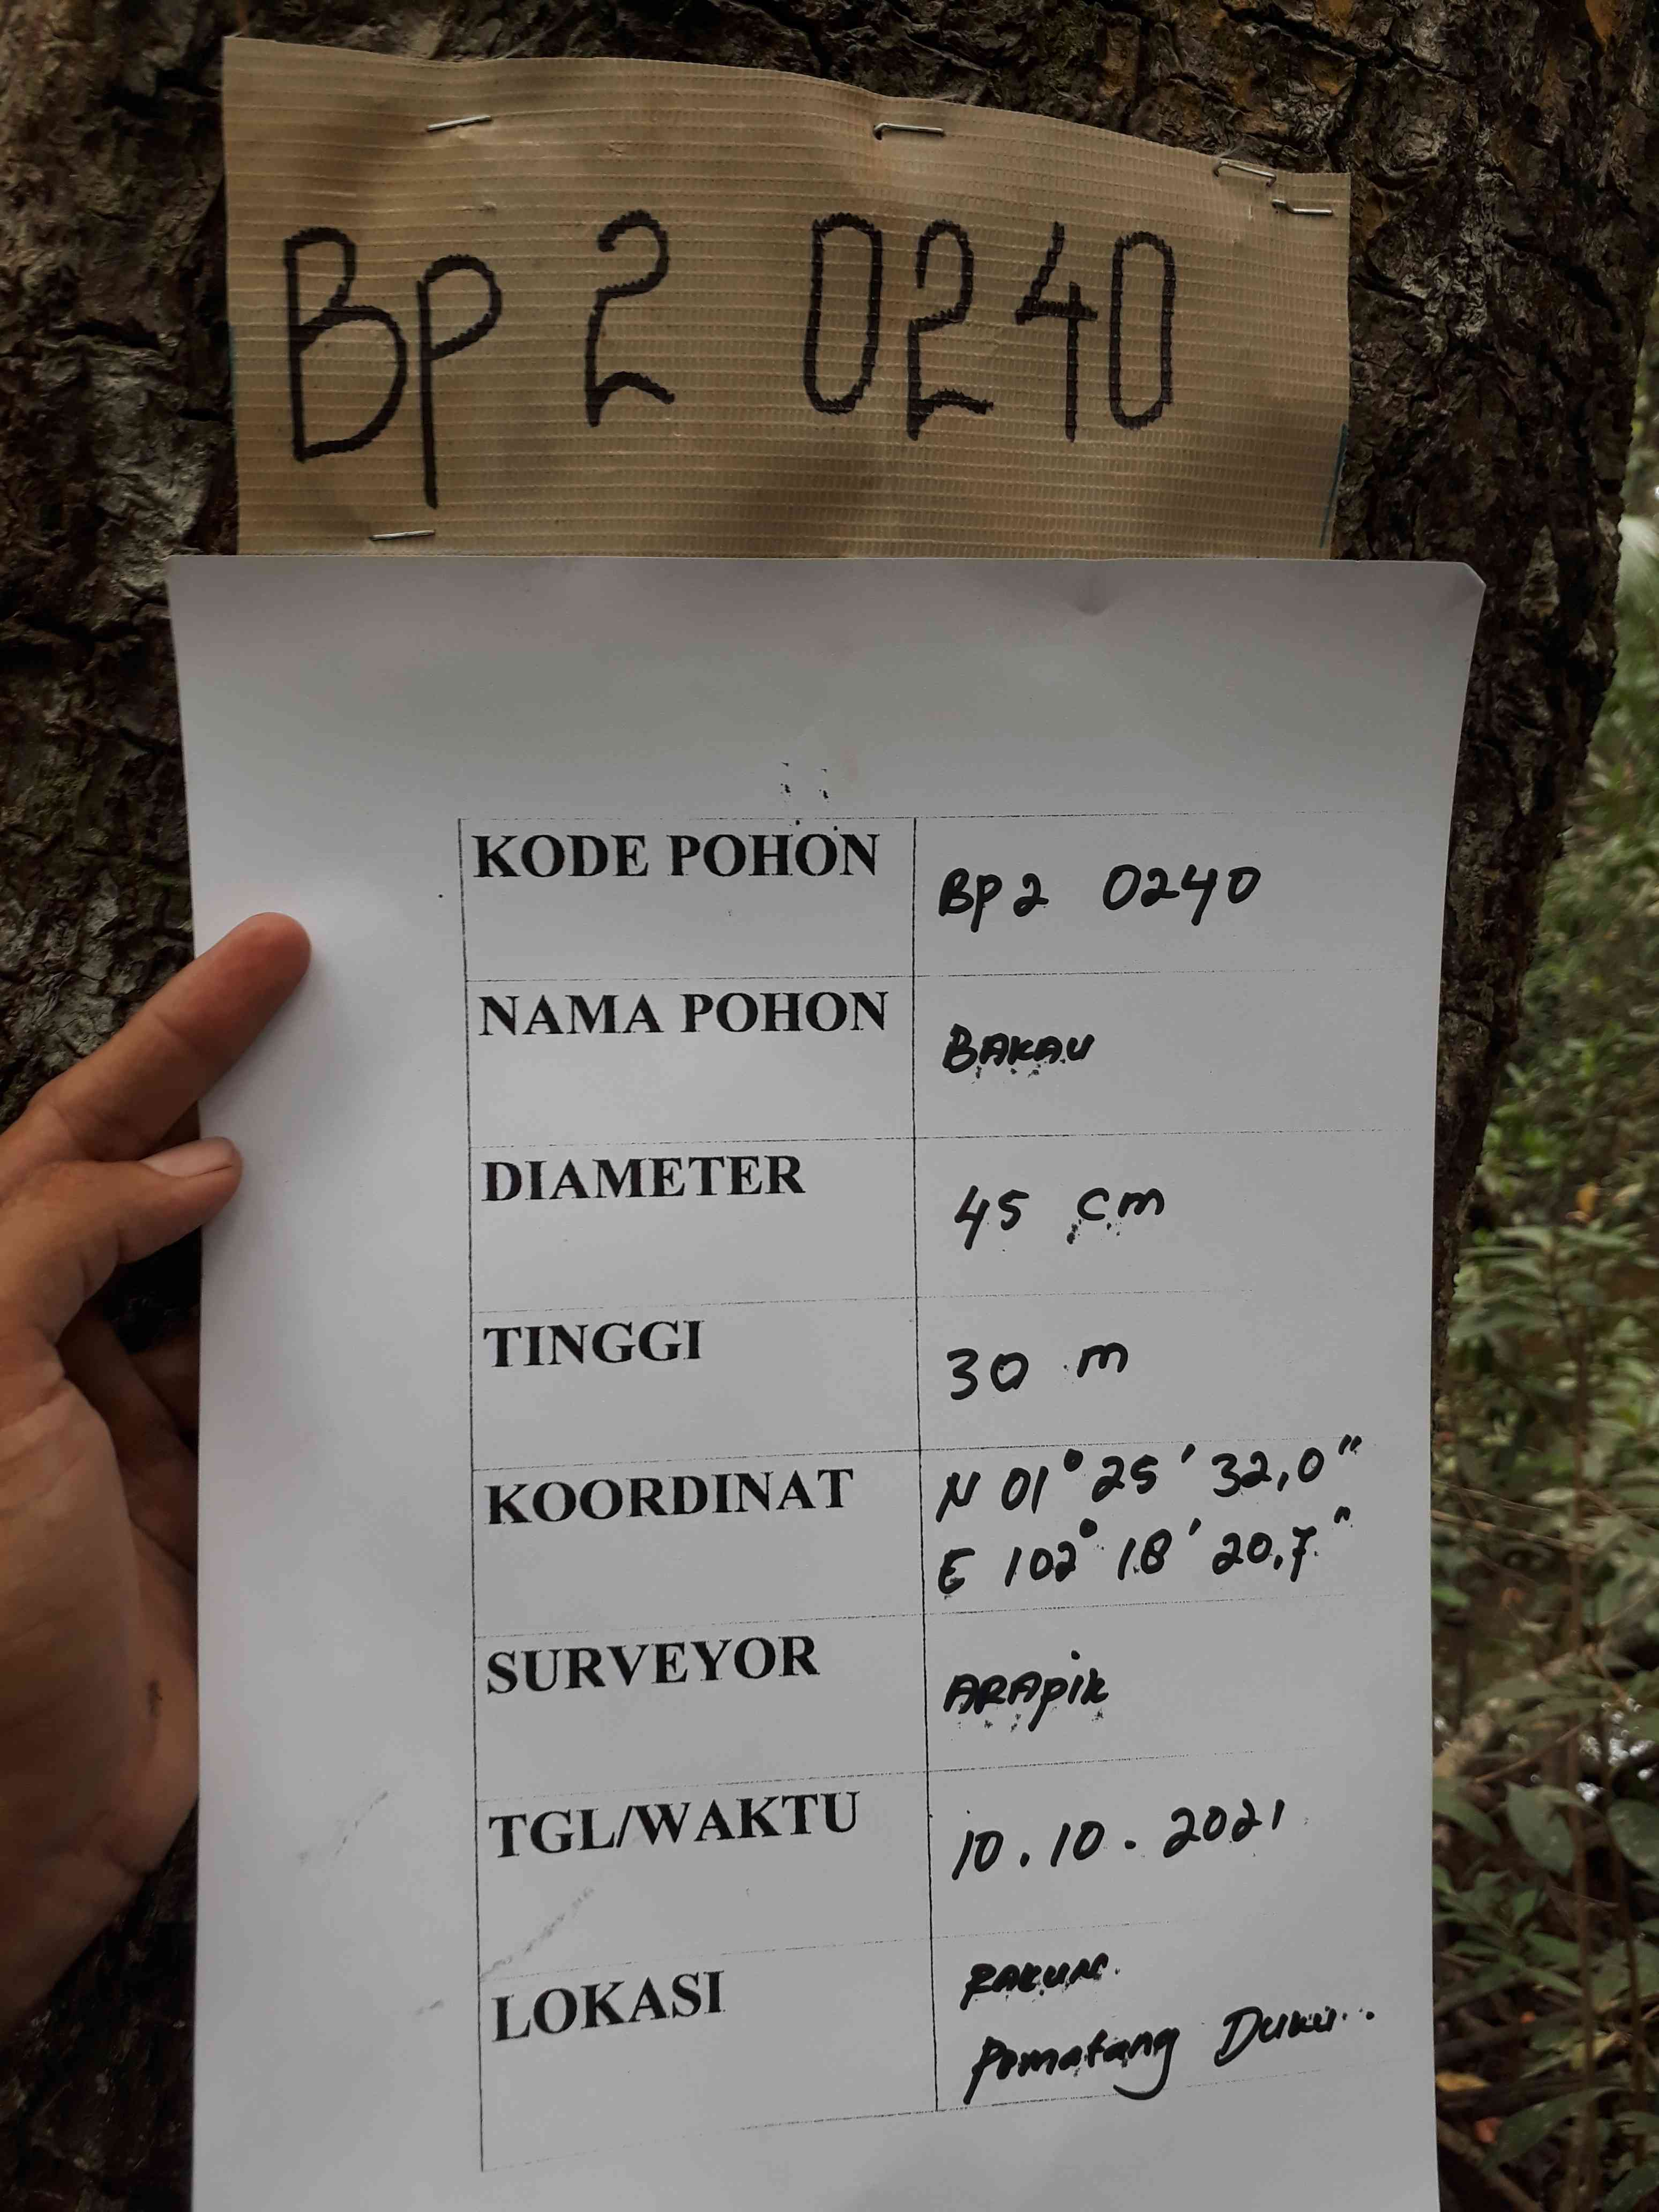 BP 2 0240
KODE POHON BP2 0240
NAMA POHON BAKAU
DIAMETER 45 cm
TINGGI 30 m
KOORDINAT N 01° 25' 32,0"
E 102° 18' 20,7"
SURVEYOR ARApik
TGL/WAKTU 10.10.2021
LOKASI
Pematang Duku..